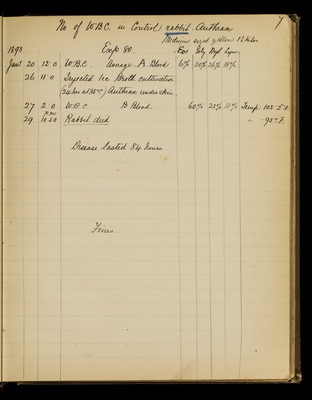 7
No of W.B.C. in Control rabbit. Anthrax
Medium sized yellow 1½ kilos
1893 Exp 80. Eos Poly Hyal Lym
Jan. 20 12.0 W.B.C. Average A Blood 6% 50% 26% 18%
26 11.0 Injected 1cc Broth cultivation
24 hrs at 35°C Anthrax under skin
27 2.0 W.B.C B Blood. 60% 22% 18% Temp: 105° F
29 10.50 Rabbit died " 95° F.
Disease lasted 84 hours.
Finis.